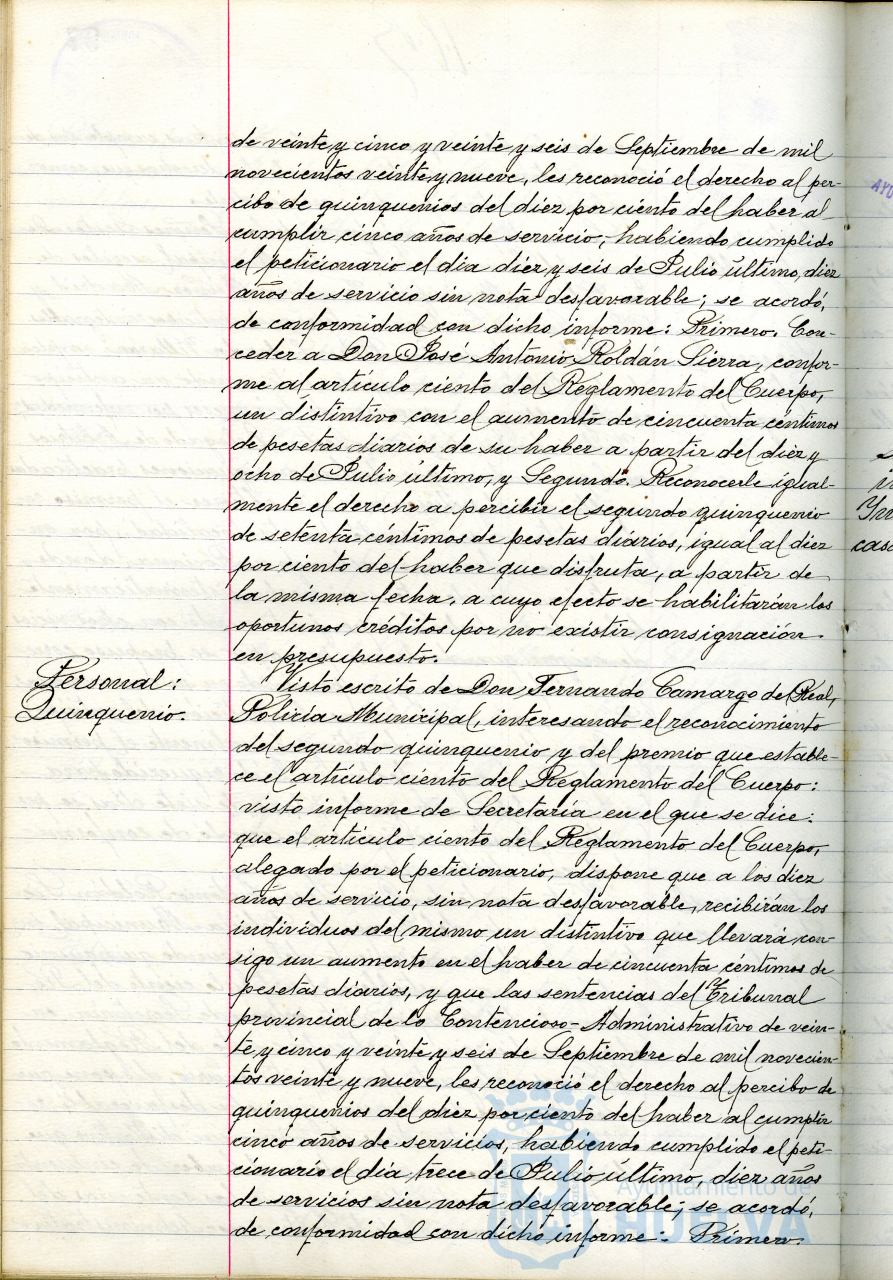 de veinte y cinco y veinte y seis de Septiembre de mil
novecientos veinte y nueve, les reconoció el derecho al per-
cibo de quinquenios del diez por ciento del haber al
cumplir cinco años de servicio; habiendo cumplido
el peticionario el dia diez y seis de Julio último, diez
años de servicio sin nota desfavorable; se acordó,
de conformidad con dicho informe: Primero. Con-
ceder a Don José Antonio Roldán Sierra, confor-
me al artículo ciento del Reglamento del Cuerpo,
un distintivo con el aumento de cincuenta céntimos
de pesetas diarios de su haber a partir del diez y
ocho de Julio último, y Segundo. Reconocerle igual-
mente el derecho a percibir el segundo quinquenio
de setenta céntimos de pesetas diarios, igual al diez
por ciento del haber que disfruta, a partir de
la misma fecha, a cuyo efecto se habilitarán los
oportunos créditos por no existir consignación
en presupuesto.
Personal:
Quinquenio.
Visto escrito de Don Fernando Camargo de Real,
Policía Municipal, interesando el reconocimiento
del segundo quinquenio y del premio que estable-
ce el artículo ciento del Reglamento del Cuerpo:
visto informe de Secretaría en el que se dice:
que el artículo ciento del Reglamento del Cuerpo,
alegado por el peticionario, dispone que a los diez
años de servicio, sin nota desfavorable, recibirán los
individuos del mismo un distintivo que llevará con-
sigo un aumento en el haber de cincuenta céntimos de
pesetas diarios, y que las sentencias del Tribunal
provincial de lo Contencioso-Administrativo de vein-
te y cinco y veinte y seis de Septiembre de mil novecien-
tos veinte y nueve, les reconoció el derecho al percibo de
quinquenios del diez por ciento del haber al cumplir
cinco años de servicios, habiendo cumplido el peti-
cionario el día trece de Julio último, diez años
de servicios sin nota desfavorable; se acordó,
de conformidad con dicho informe: Primero.
Ayuntamiento de
HUELVA